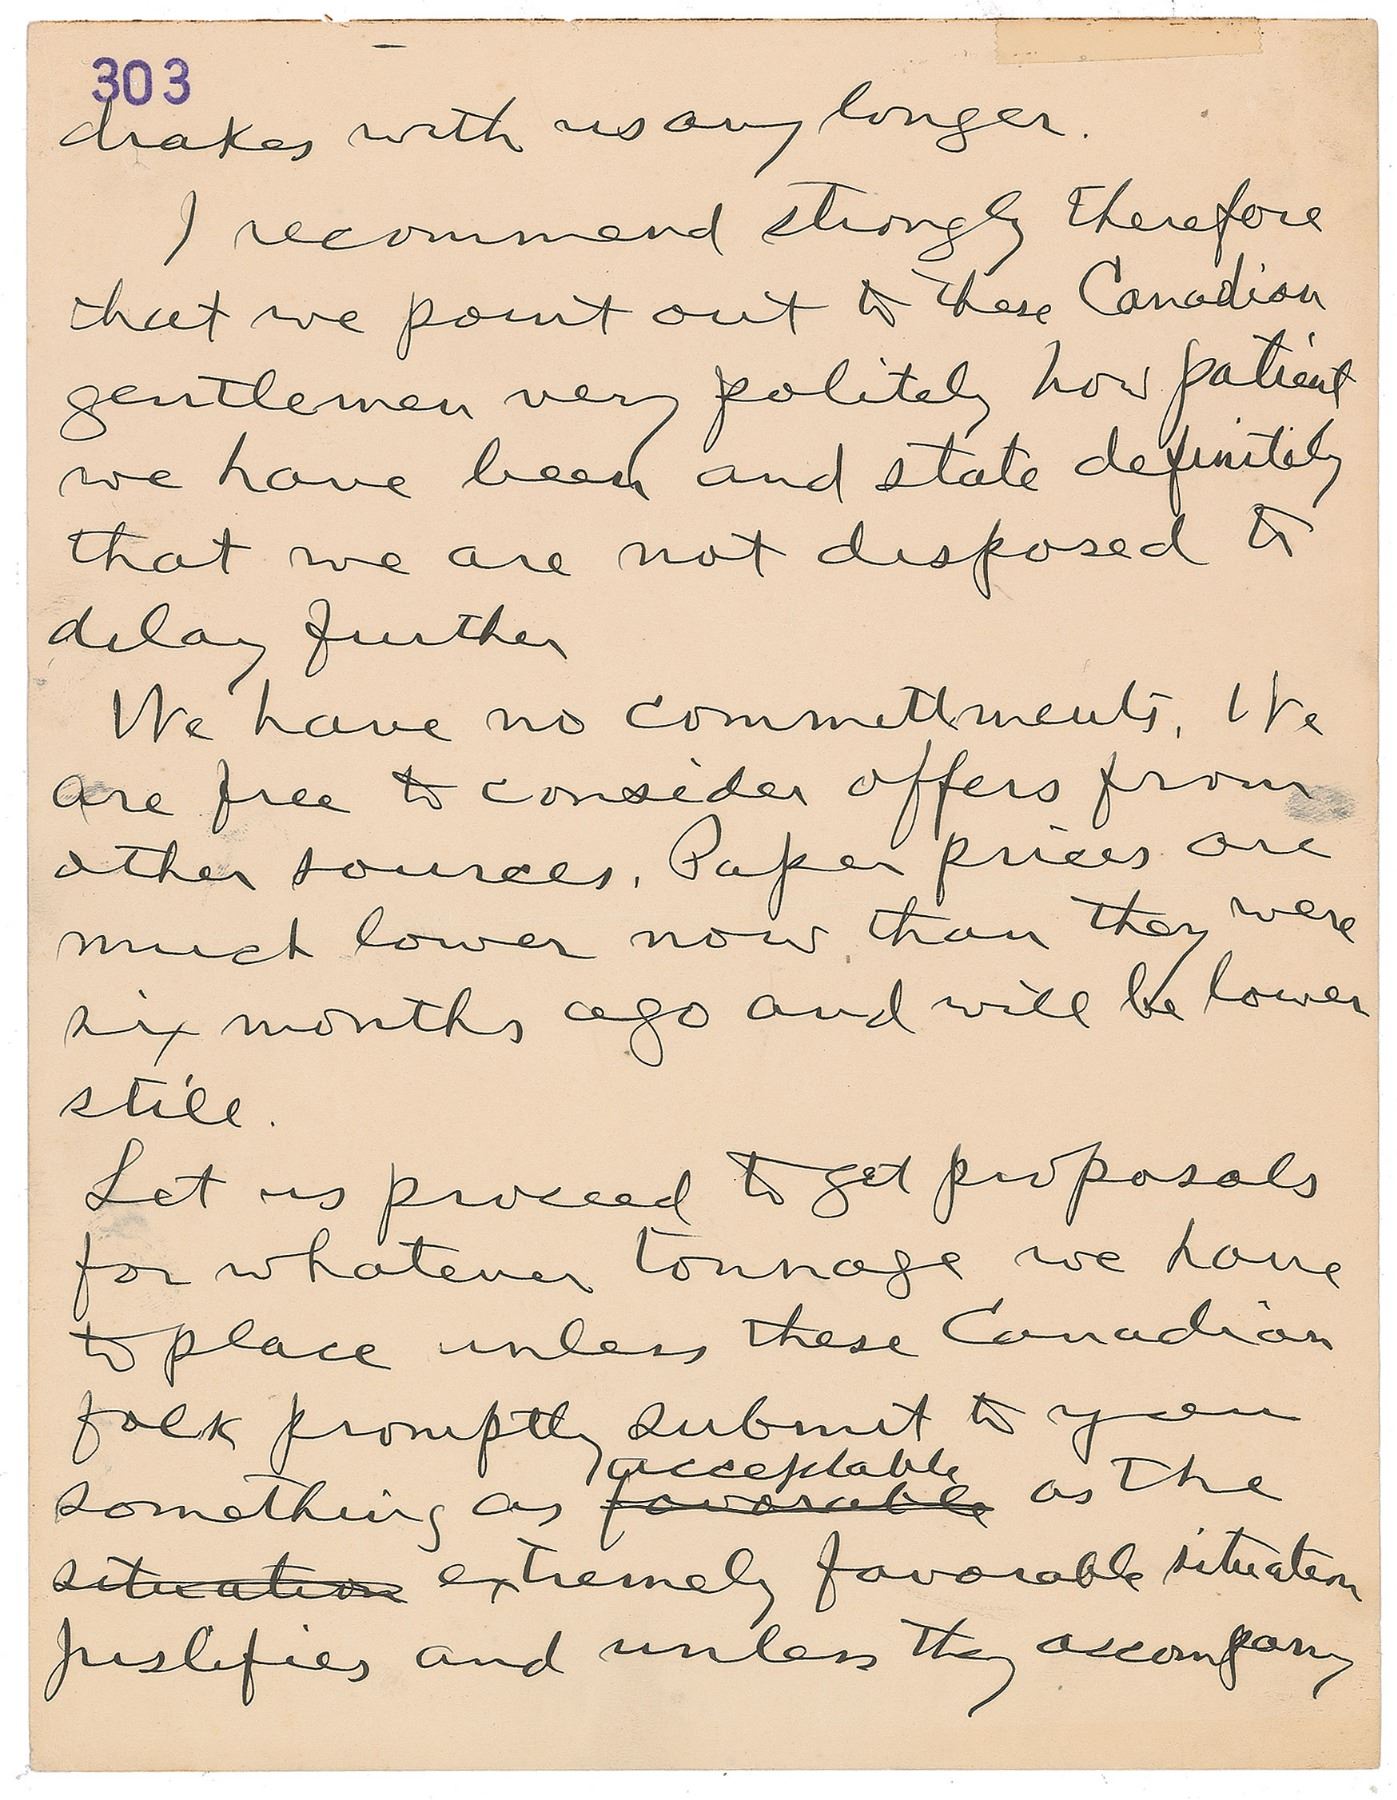 303
drakes with us any longer.
I recommend strongly therefore
that we point out to these Canadian
gentlemen very politely how patient
we have been and state definitely
that we are not disposed to
delay further
We have no committments. We
are free to consider offers from
other sources. Paper prices are
much lower now than they were
six months ago and will be lower
still.
Let us proceed to get proposals
for whatever tonnage we have
to place unless these Canadian
folk promptly submit to you
acceptable
something as favorable as the
situation extremely favorable situation
justifies and unless they accompany